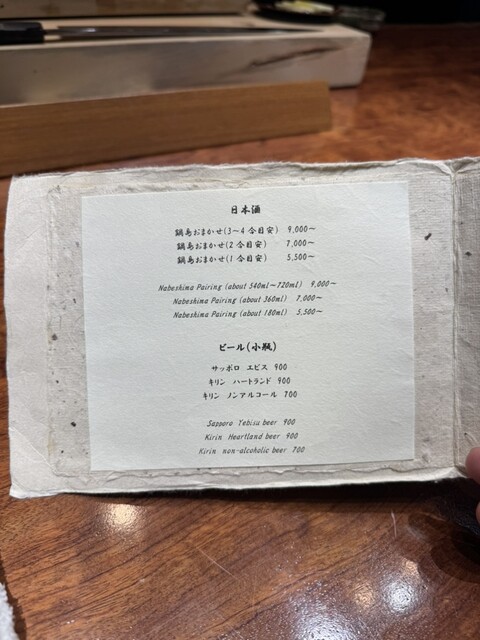 日本酒
鍋島おまかせ(3〜4合目安) 9,000〜
鍋島おまかせ(2合目安) 7,000〜
鍋島おまかせ(1合目安) 5,500〜
Nabeshima Pairing (about 540ml〜720ml) 9,000〜
Nabeshima Pairing (about 360ml) 7,000〜
Nabeshima Pairing (about 180ml) 5,500〜
ビール(小瓶)
サッポロ エビス 900
キリン ハートランド 900
キリン ノンアルコール 700
Sapporo Yebisu beer 900
Kirin Heartland beer 900
Kirin non-alcoholic beer 700